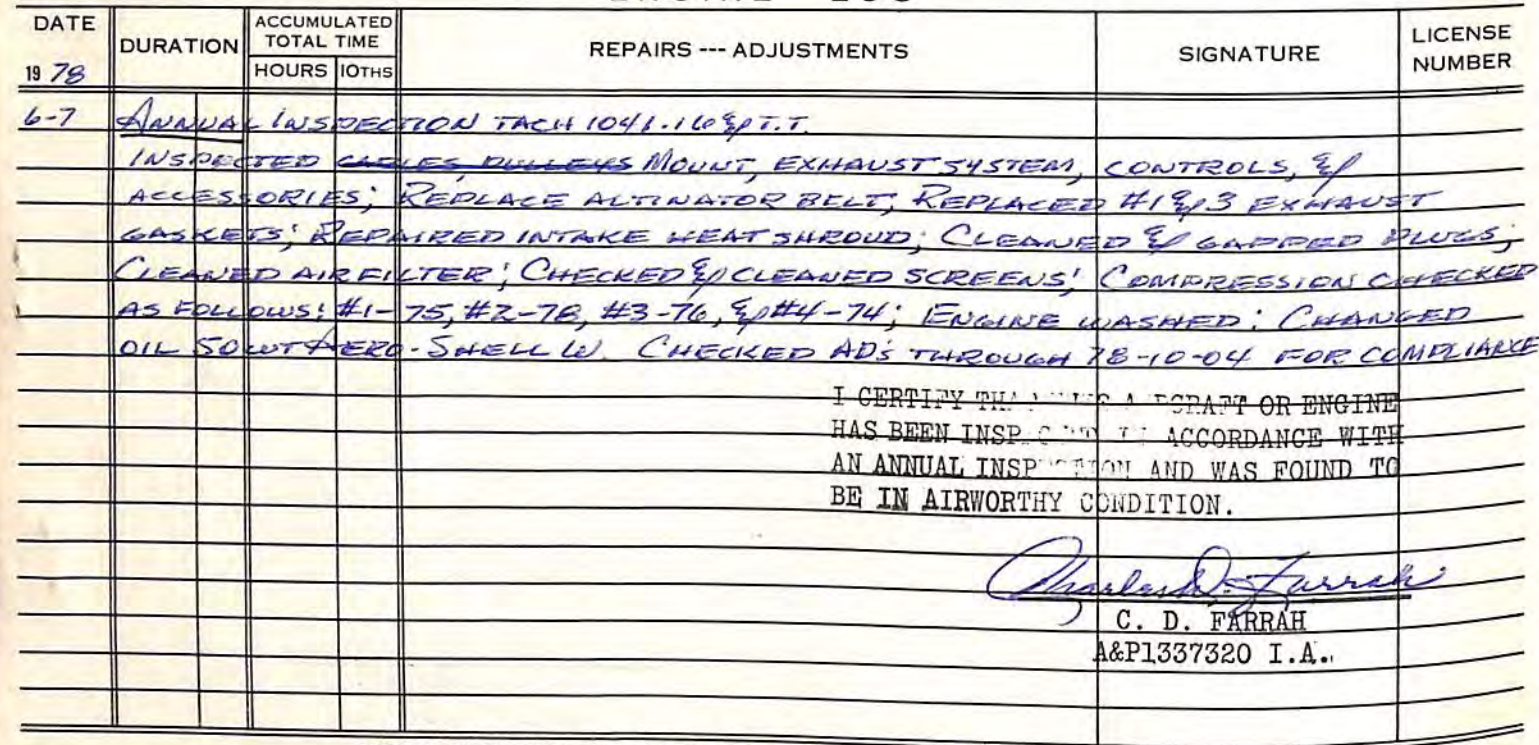 ENGINE LOG
DATE
1978
DURATION
ACCUMULATED TOTAL TIME
HOURS 10THS
REPAIRS --- ADJUSTMENTS
SIGNATURE
LICENSE NUMBER
6-7 ANNUAL INSPECTION TACH 1041.16 & T.T.
INSPECTED CABLES, PULLEYS MOUNT, EXHAUST SYSTEM, CONTROLS, &
ACCESSORIES; REPLACE ALTINATOR BELT; REPLACED #1 & 3 EXHAUST
GASKETS; REPAIRED INTAKE HEAT SHROUD; CLEANED & GAPPED PLUGS;
CLEANED AIR FILTER; CHECKED & CLEANED SCREENS; COMPRESSION CHECKED
AS FOLLOWS: #1-75, #2-78, #3-76, & #4-74; ENGINE WASHED; CHANGED
OIL 50WT AERO-SHELL W. CHECKED AD'S THROUGH 78-10-04 FOR COMPLIANCE
I CERTIFY THAT THIS AIRCRAFT OR ENGINE
HAS BEEN INSPECTED IN ACCORDANCE WITH
AN ANNUAL INSPECTION AND WAS FOUND TO
BE IN AIRWORTHY CONDITION.
Charles D. Farrah
C. D. FARRAH
A&P1337320 I.A.